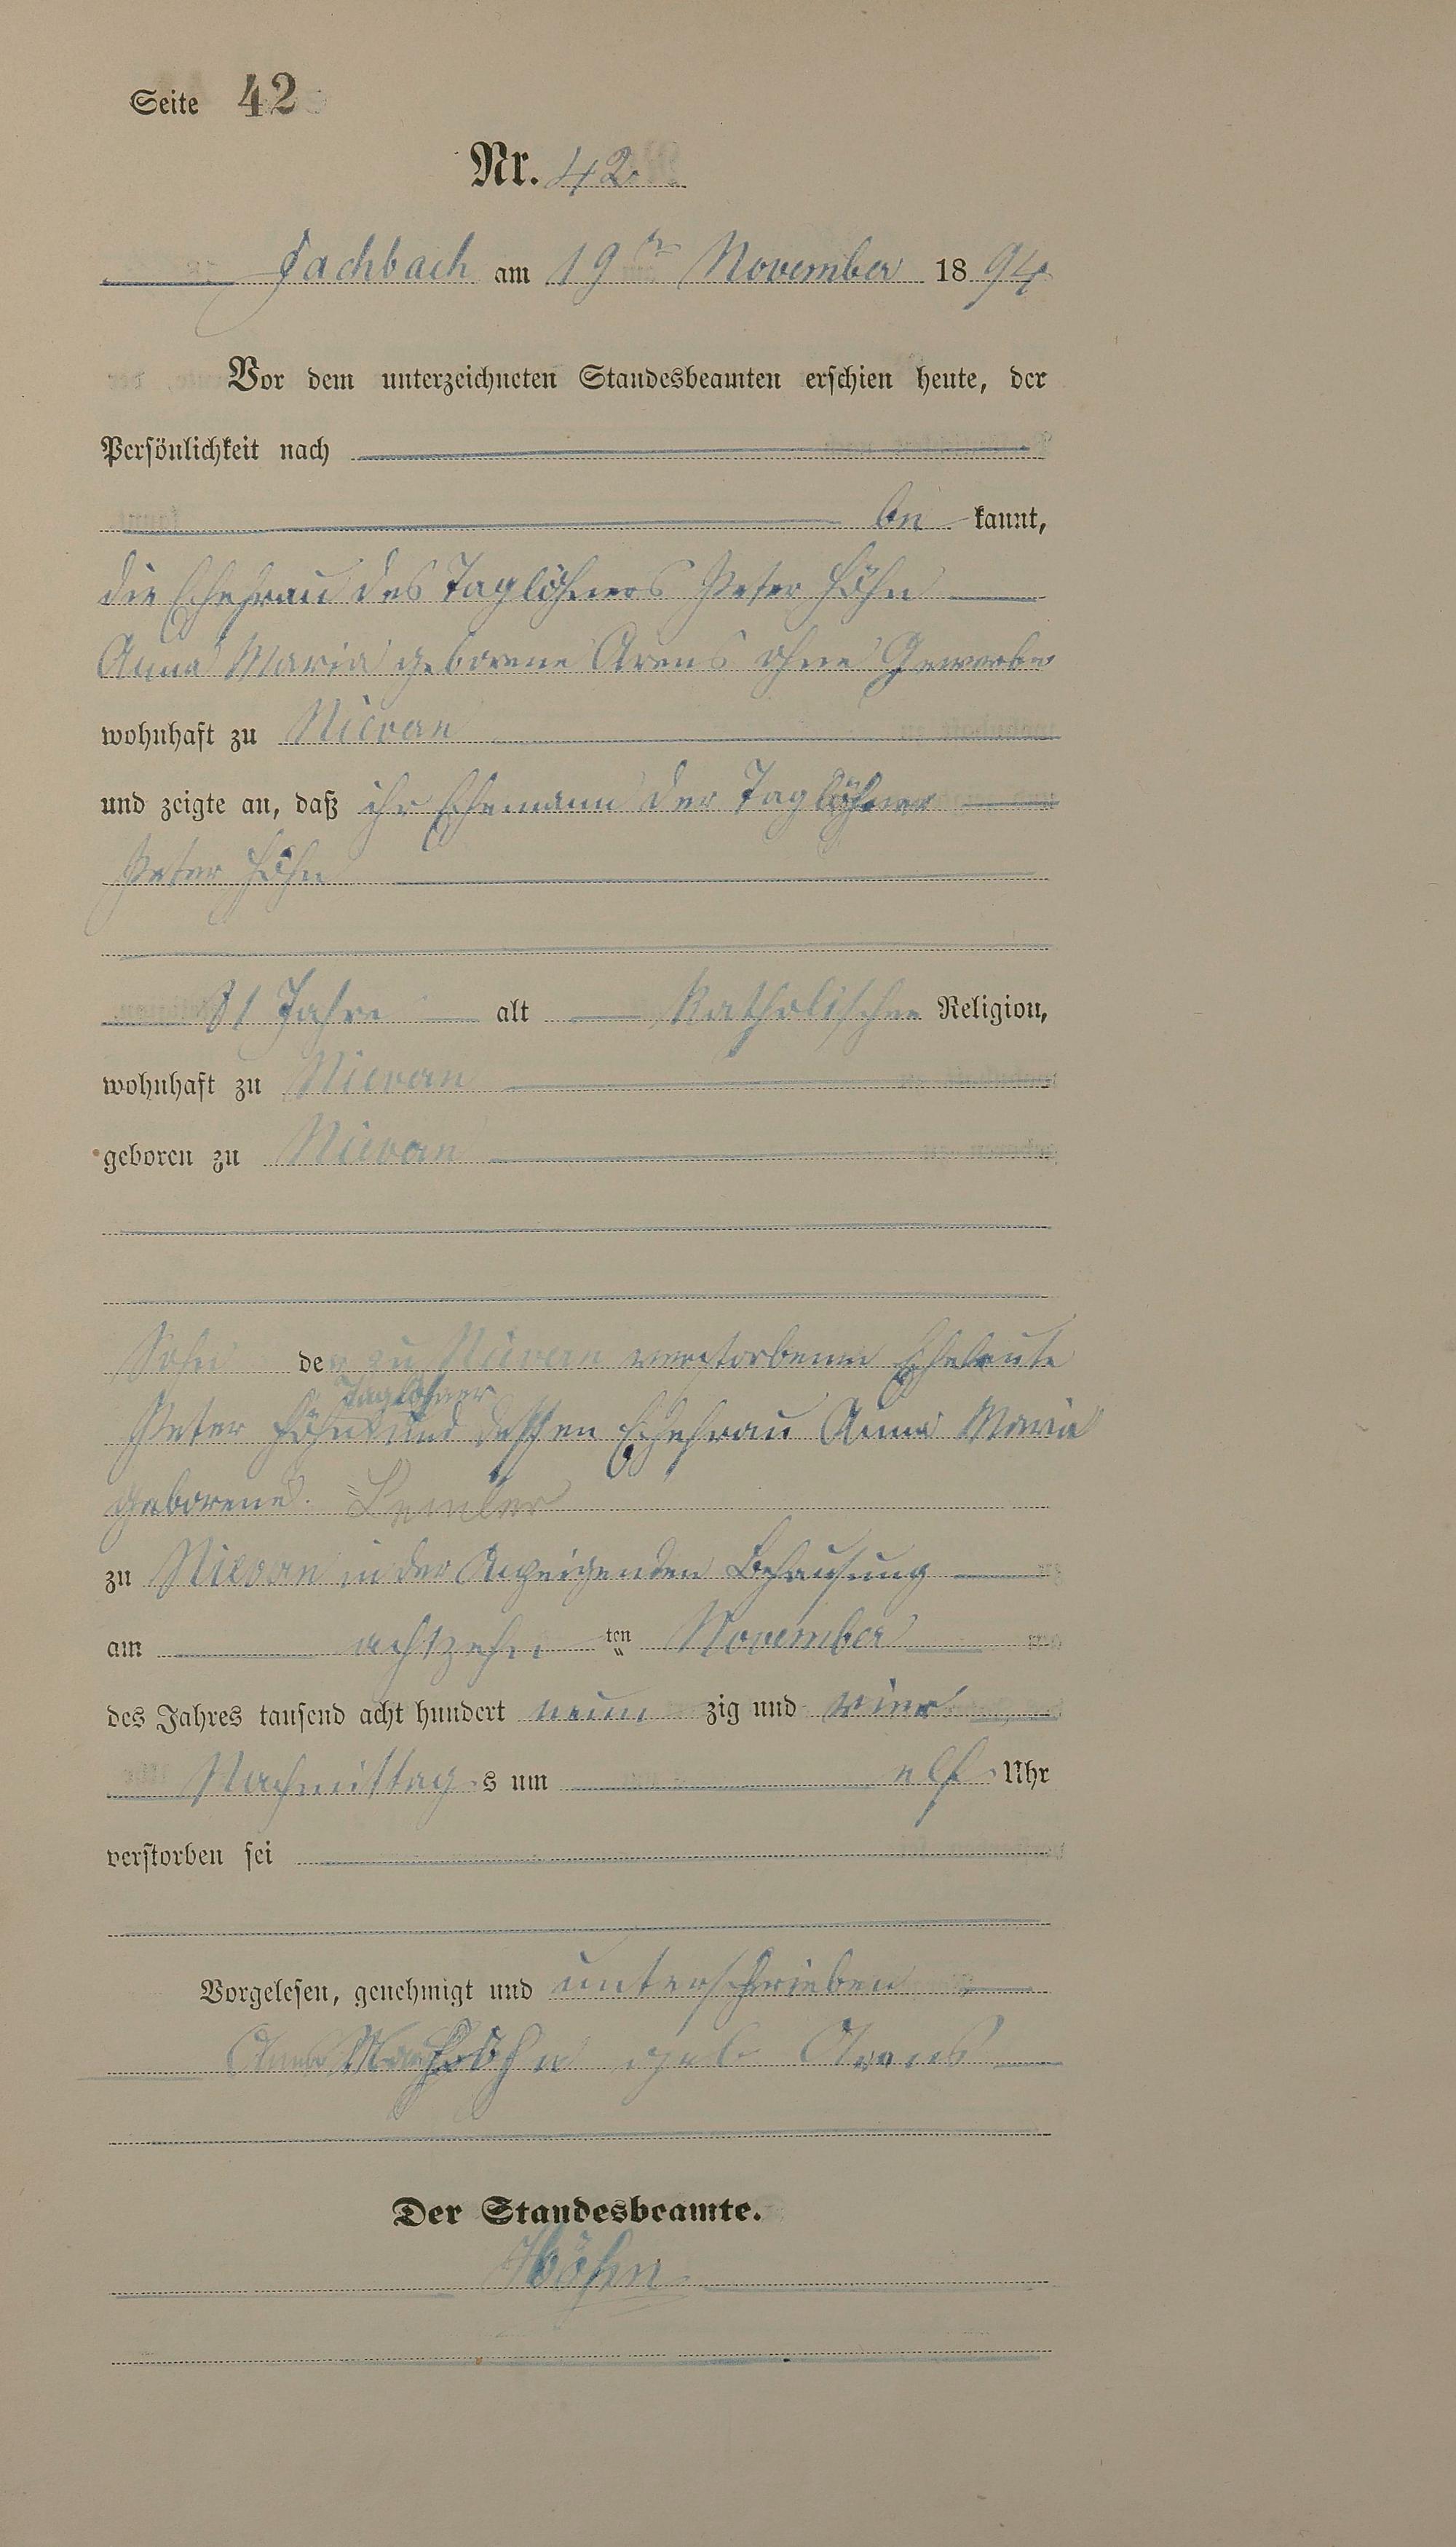 Seite 42
Nr. 42.
Fachbach am 19ten November 1894
Vor dem unterzeichneten Standesbeamten erschien heute, der
Persönlichkeit nach
be kannt,
die Ehefrau des Taglöhners Peter Höhn
Anna Maria geborene Arens ohne Gewerbe
wohnhaft zu Nievern
und zeigte an, daß ihr Ehemann der Taglöhner
Peter Höhn
31 Jahre alt katholischer Religion,
wohnhaft zu Nievern
geboren zu Nievern
Sohn der zu Nievern verstorbenen Eheleute
Taglöhner
Peter Höhn und dessen Ehefrau Anna Maria
geborene
zu Nievern in der Anzeigenden Behausung
am achtzehn ten November
des Jahres tausend acht hundert neun zig und vier
Nachmittag s um elf Uhr
verstorben sei
Vorgelesen, genehmigt und unterschrieben
Anna Maria Höhn geb Arens
Der Standesbeamte.
Höhn